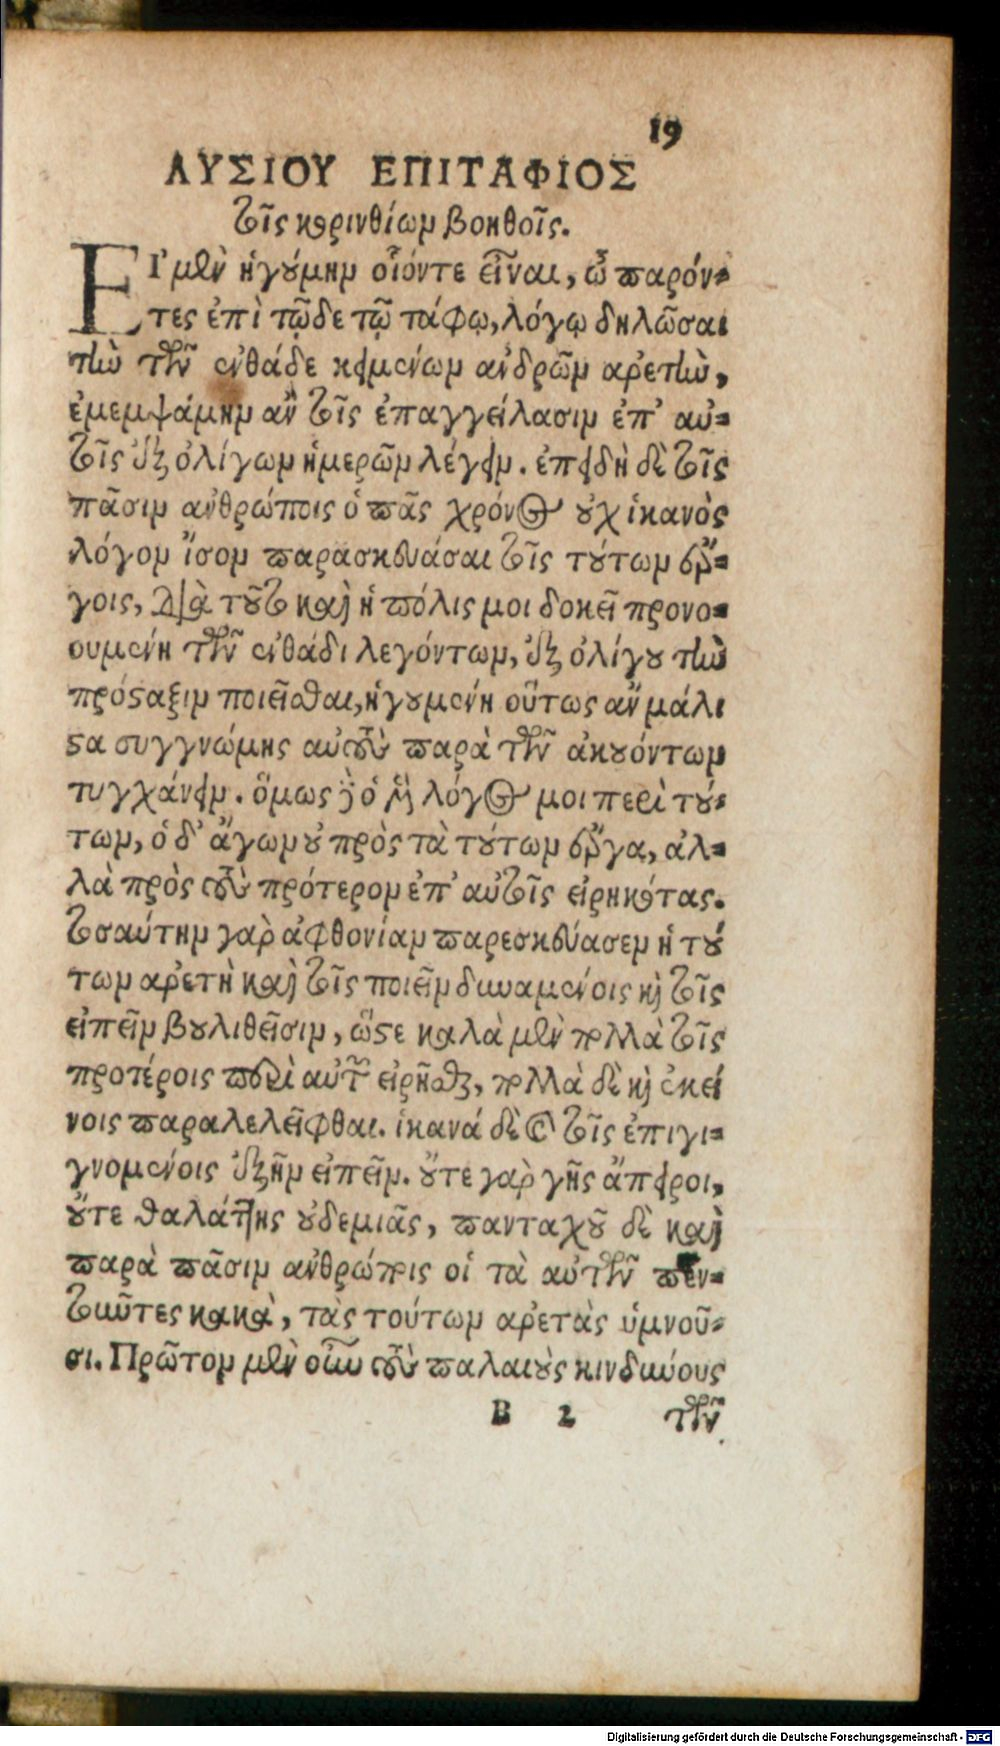 19
ΛΥΣΙΟΥ ΕΠΙΤΑΦΙΟΣ
τοῖς κορινθίων βοηθοῖς.
ΕΙ᾽ μὲν ἡγούμην οἷόντε εἶναι, ὦ παρόν-
τες ἐπὶ τῷδε τῷ τάφῳ, λόγῳ δηλῶσαι
τὴν τῶν ἐνθάδε κειμένων ἀνδρῶν ἀρετὴν,
ἐμεμψάμην ἂν τοῖς ἐπαγγείλασιν ἐπ᾽ αὐ-
τοῖς ἐξ ὀλίγων ἡμερῶν λέγειν. ἐπειδὴ δὲ τοῖς
πᾶσιν ἀνθρώποις ὁ πᾶς χρόνος οὐχ ἱκανὸς
λόγον ἴσον παρασκευάσαι τοῖς τούτων ἔρ-
γοις, διὰ τοῦτο καὶ ἡ πόλις μοι δοκεῖ προνο-
ουμένη τῶν ἐνθάδι λεγόντων, ἐξ ὀλίγου τὴν
πρόσταξιν ποιεῖσθαι, ἡγουμένη οὕτως ἂν μάλι
στα συγγνώμης αὐτοὺς παρὰ τῶν ἀκουόντων
τυγχάνειν. ὅμως δὲ ὁ μὲν λόγος μοι περὶ τού-
των, ὁ δ᾽ ἄγων οὐ πρὸς τὰ τούτων ἔργα, ἀλ-
λὰ πρὸς τοὺς πρότερον ἐπ᾽ αὐτοῖς εἰρηκότας.
τοσαύτην γὰρ ἀφθονίαν παρεσκεύασεν ἡ τού
των ἀρετὴ καὶ τοῖς ποιεῖν δυναμένοις καὶ τοῖς
εἰπεῖν βουλιθεῖσιν, ὥστε καλὰ μὲν πολλὰ τοῖς
προτέροις περὶ αὐτῶν εἰρῆσθαι, πολλὰ δὲ καὶ ἐκεί
νοις παραλελεῖφθαι. ἱκανά δὲ καὶ τοῖς ἐπιγι-
γνομένοις ἐξῆν εἰπεῖν. οὔτε γὰρ γῆς ἄπειροι,
οὔτε θαλάττης οὐδεμιᾶς, πανταχοῦ δὲ καὶ
παρὰ πᾶσιν ἀνθρώποις οἱ τὰ αὐτῶν πεν-
θοῦντες κακὰ, τὰς τούτων ἀρετὰς ὑμνοῦ-
σι. Πρῶτον μὲν οὖν τοὺς παλαιοὺς κινδύνους
B 2 τῶν
Digitalisierung gefördert durch die Deutsche Forschungsgemeinschaft - DFG